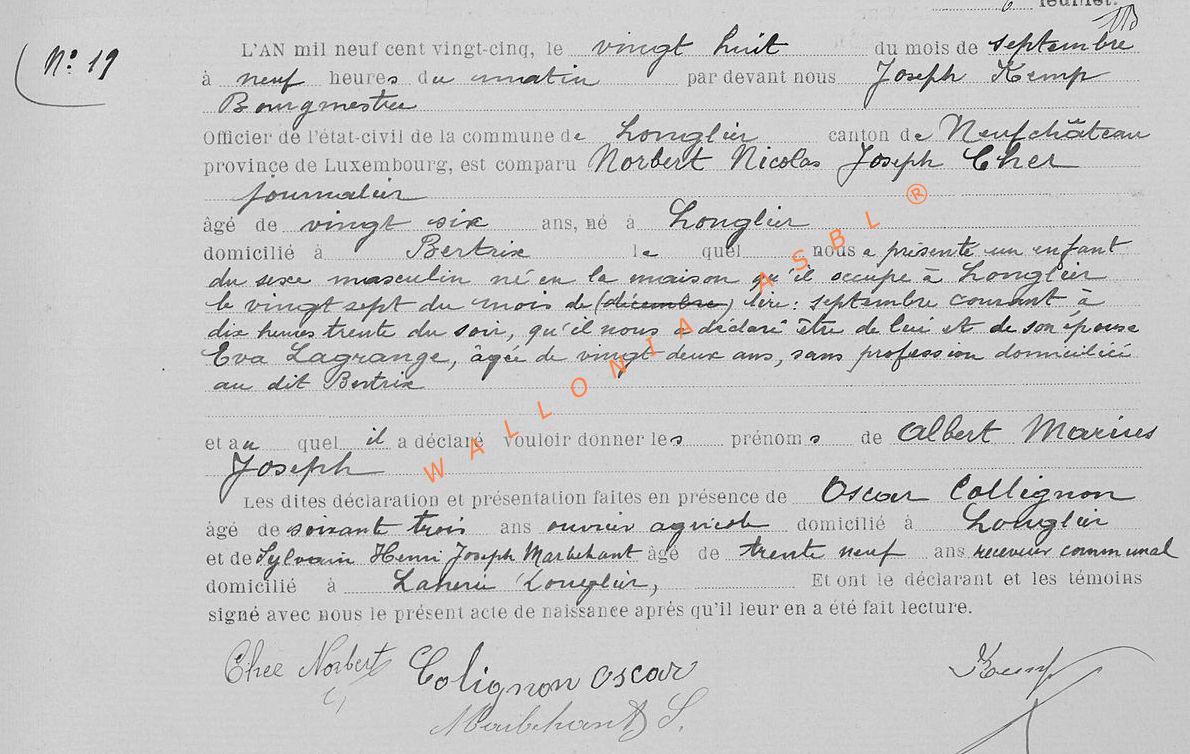 feuillet.
N° 19
L'AN mil neuf cent vingt-cinq, le vingt huit du mois de septembre
à neuf heures du matin par devant nous Joseph Kemp
Bourgmestre
Officier de l'état-civil de la commune de Longlier canton de Neufchâteau
province de Luxembourg, est comparu Norbert Nicolas Joseph Cher
journalier
âgé de vingt six ans, né à Longlier
domicilié à Bertrix le quel nous a présenté un enfant
du sexe masculin né en la maison qu'il occupe à Longlier
le vingt sept du mois de (décembre) lire: septembre courant à
dix heures trente du soir, qu'il nous a déclaré être de lui et de son épouse
Eva Lagrange, âgée de vingt deux ans, sans profession domiciliée
au dit Bertrix
et au quel il a déclaré vouloir donner les prénoms de Albert Marius
Joseph
Les dites déclaration et présentation faites en présence de Oscar Collignon
âgé de soixante trois ans ouvrier agricole domicilié à Longlier
et de Sylvain Henri Joseph Marbehant âgé de trente neuf ans receveur communal
domicilié à Longlier, Et ont le déclarant et les témoins
signé avec nous le présent acte de naissance après qu'il leur en a été fait lecture.
Cher Norbert Colignon Oscar Kemp
Marbehant S.
WALLONIA ASBL ®